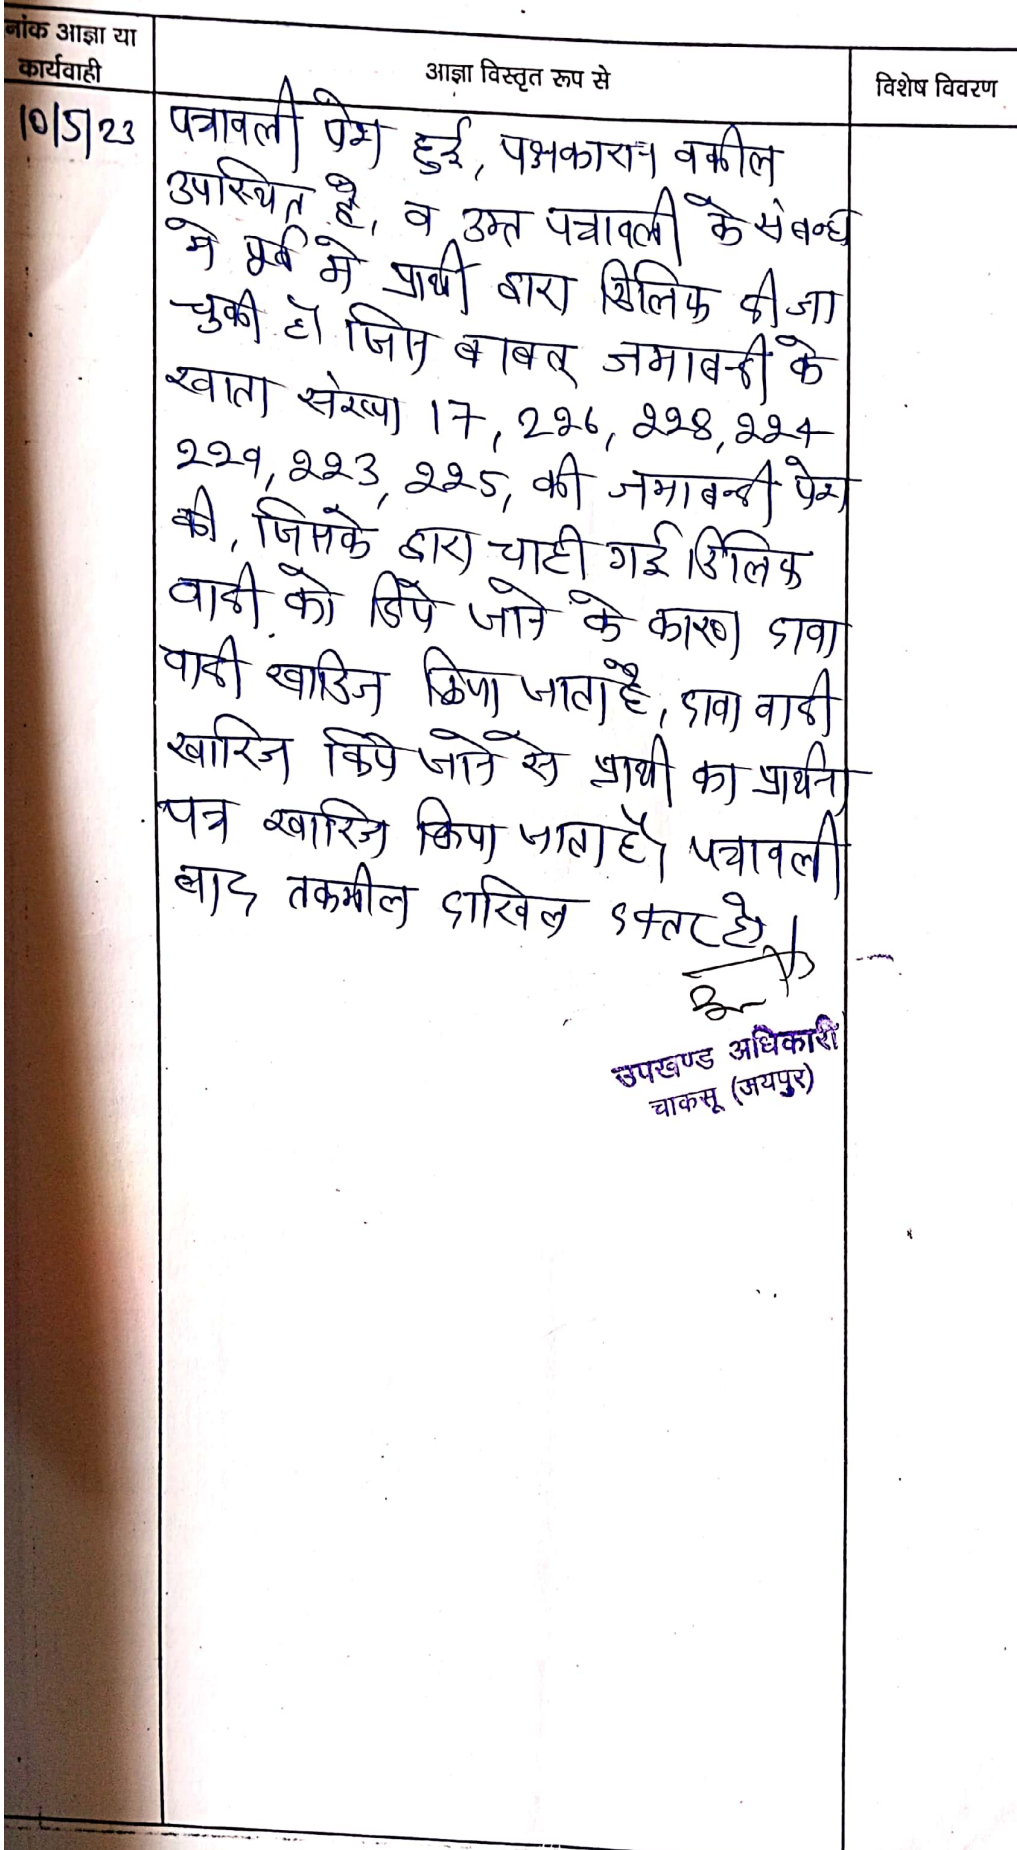 नांक आज्ञा या
कार्यवाही
आज्ञा विस्तृत रूप से
विशेष विवरण
10/5/23
पत्रावली पेश हुई, पक्षकारान वकील
उपस्थित है, व उक्त पत्रावली के संबन्ध
मे पूर्व मे प्रार्थी द्वारा रिलिफ दी जा
चुकी है। जिस बाबत जमाबन्दी के
खाता संख्या 17, 226, 228, 224
229, 223, 225, की जमाबन्दी पेश
की, जिसके द्वारा चाही गई रिलिफ
वादी को दिये जाने के कारण दावा
वादी खारिज किया जाता है, दावा वादी
खारिज किये जाने से प्रार्थी का प्रार्थना
पत्र खारिज किया जाता है। पत्रावली
बाद तकमील दाखिल दफ्तर हो।
उपखण्ड अधिकारी
चाकसू (जयपुर)